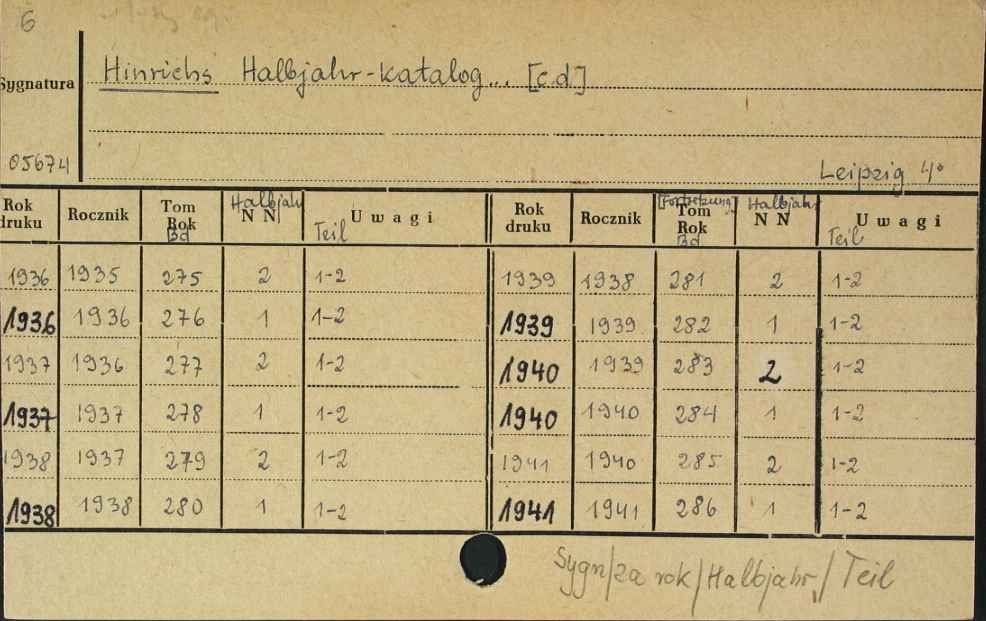 6
Sygnatura Hinrichs Halbjahr-katalog... [c.d.]
05674 Leipzig 4°
Rok druku Rocznik Tom Rok Bd Halbjahr N N Teil Uwagi Rok druku Rocznik [Fortsetzung] Tom Rok Bd Halbjahr N N Teil Uwagi
1936 1935 275 2 1-2 1939 1938 281 2 1-2
1936 1936 276 1 1-2 1939 1939 282 1 1-2
1937 1936 277 2 1-2 1940 1939 283 2 1-2
1937 1937 278 1 1-2 1940 1940 284 1 1-2
1938 1937 279 2 1-2 1941 1940 285 2 1-2
1938 1938 280 1 1-2 1941 1941 286 1 1-2
Sygn/za rok/Halbjahr,/Teil